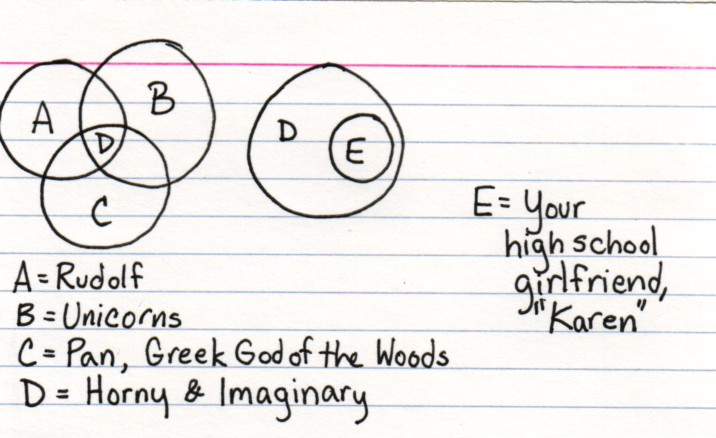 A
B
D
C
D
E
E = Your
high school
girlfriend,
"Karen"
A = Rudolf
B = Unicorns
C = Pan, Greek God of the Woods
D = Horny & Imaginary